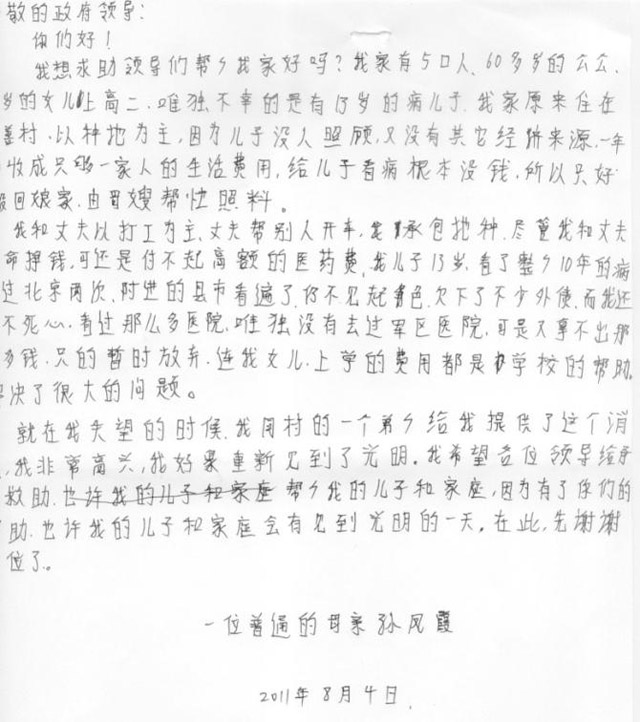 敬的政府领导:
你们好!
我想求助领导们帮帮我家好吗?我家有5口人.60多岁的公公.
岁的女儿上高二.唯独不幸的是有13岁的病儿子.我家原来住在
村.以种地为主,因为儿子没人照顾,又没有其它经济来源.一年
收成只够一家人的生活费用,给儿子看病根本没钱.所以只好
回娘家.由哥嫂帮忙照料。
我和丈夫以打工为主.丈夫帮别人开车,我承包地种.尽管我和丈夫
挣钱,可还是付不起高额的医药费.我儿子13岁.看了整个10年的病
过北京两次.附近的县市看遍了.仍不见起色.欠下了不少外债.而我还
不死心.看过那么多医院.唯独没有去过军区医院.可是又拿不出那
多钱.只的暂时放弃.连我女儿.上学的费用都是学校的帮助.
决了很大的问题。
就在我失望的时候.我同村的一个弟弟给我提供了这个消
.我非常高兴,我好象重新见到了光明.我希望各位领导给予
救助.也许我的儿子和家庭 帮帮我的儿子和家庭,因为有了你们的
助.也许我的儿子和家庭会有见到光明的一天.在此.先谢谢
位了。
一位普通的母亲 孙凤霞
2011年8月4日.